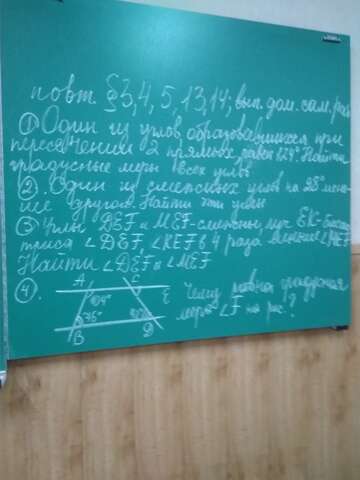 повт. § 3, 4, 5, 13, 14; вып. дом. сам. раб
① Один из углов, образовавшихся при
пересечении 2 прямых равен 84°. Найти
градусные меры всех углов
② Один из смежных углов на 28° мень-
ше другого. Найти эти углы
③ Углы DEF и MEF-смежные, луч EK-биссек
триса ∠DEF, ∠KEF в 4 раза меньше ∠MEF
Найти ∠DEF и ∠MEF
④. A C E Чему равна градусная
104° мера ∠F на рис.?
76°
B D